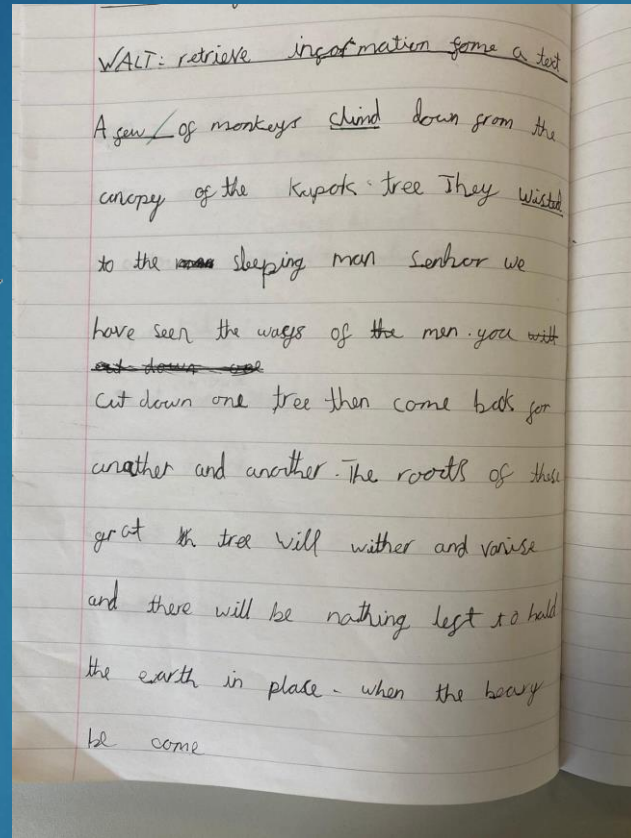 WALT: retrieve information fome a text
A few of monkeys climd down from the
canopy of the Kapok tree They wisted
to the sleeping man Senhor we
have seen the ways of the men. you will
cut down one
cut down one tree then come back for
another and another. The roots of these
grat tree will wither and vanise
and there will be nothing left to hold
the earth in place. when the heavy
be come